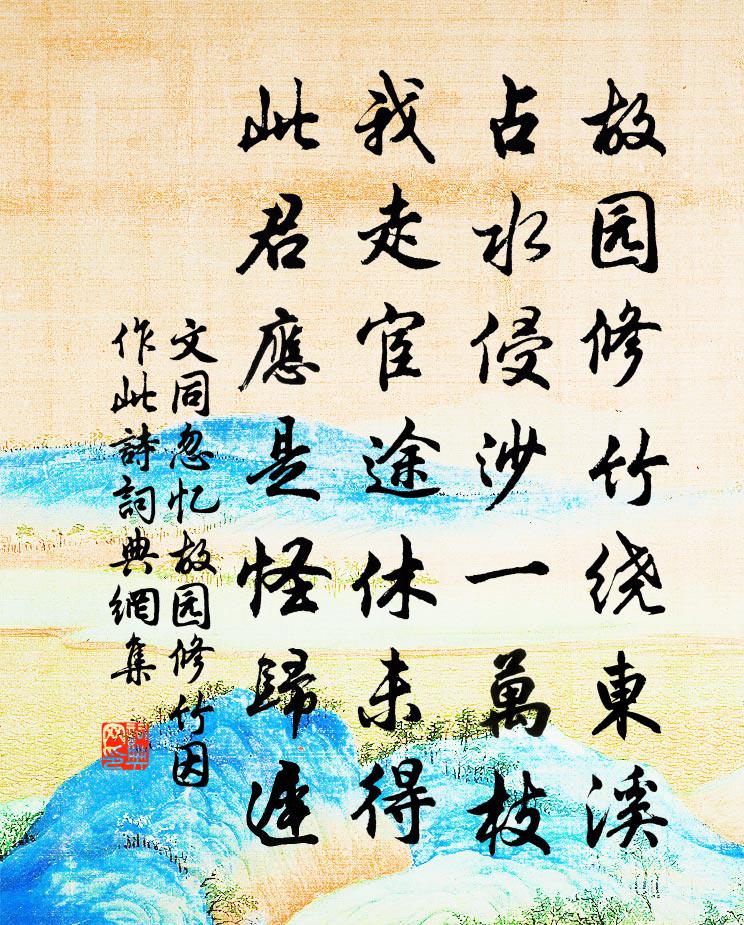 故园修竹绕東溪
占水侵沙一萬枝
我走宦途休未得
此君應是怪歸遲
文同忽忆故园修竹因
作此詩詞典網集